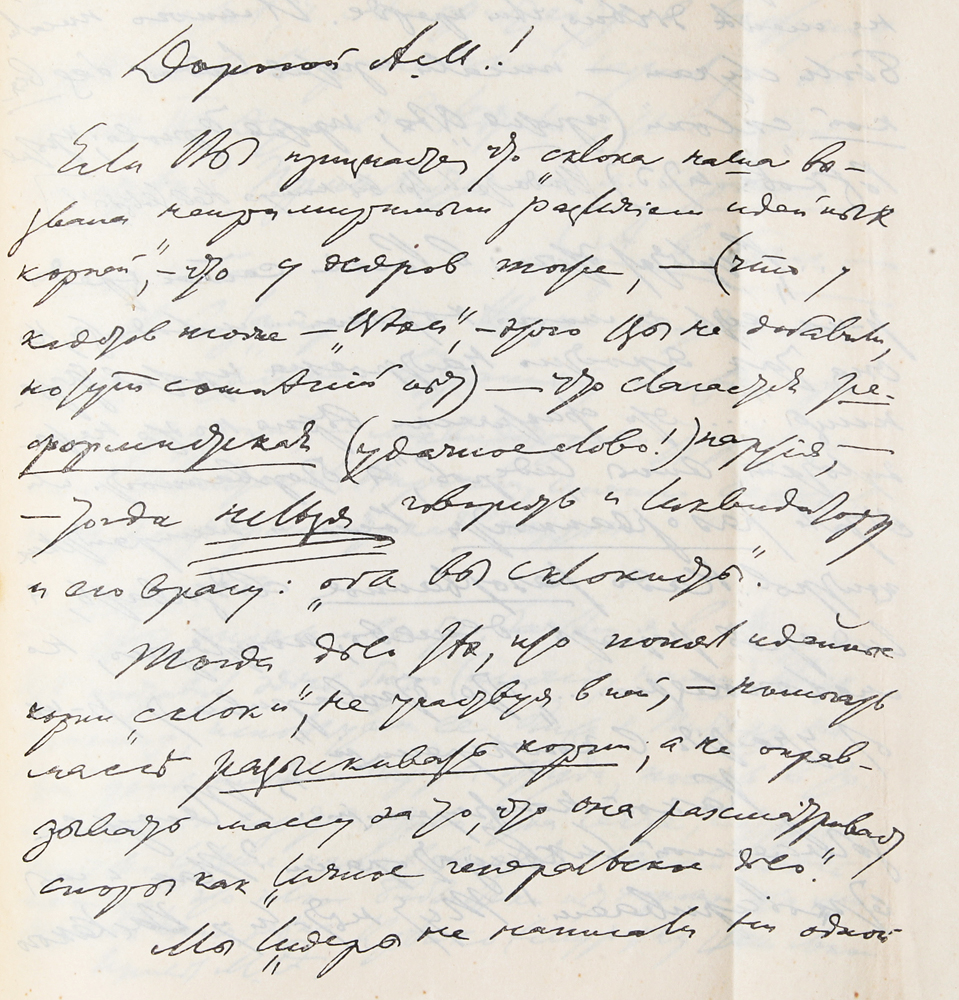 Дорогой А.М.!
Если Вы признаете, что „склока наша вы-
звана непримиримым различием идейных
корней“, — что у эсеров тоже, — (что у
кадетов тоже — „Вехи“, — этого Вы не добавили,
но тут сомнений нет) — что слагается ре-
формистская (удачное слово!) партия, —
— тогда нельзя говорить и ликвидатору
и его врагу: „оба вы склокисты“.
Тогда дело тех, кто понял идейные
корни „склоки“, не участвуя в ней, — помогать
массе разыскивать корни, а не оправ-
дывать массу за то, что она рассматривает
споры как „личное генеральское дело“.
Мы „лидеры не написали ни одной